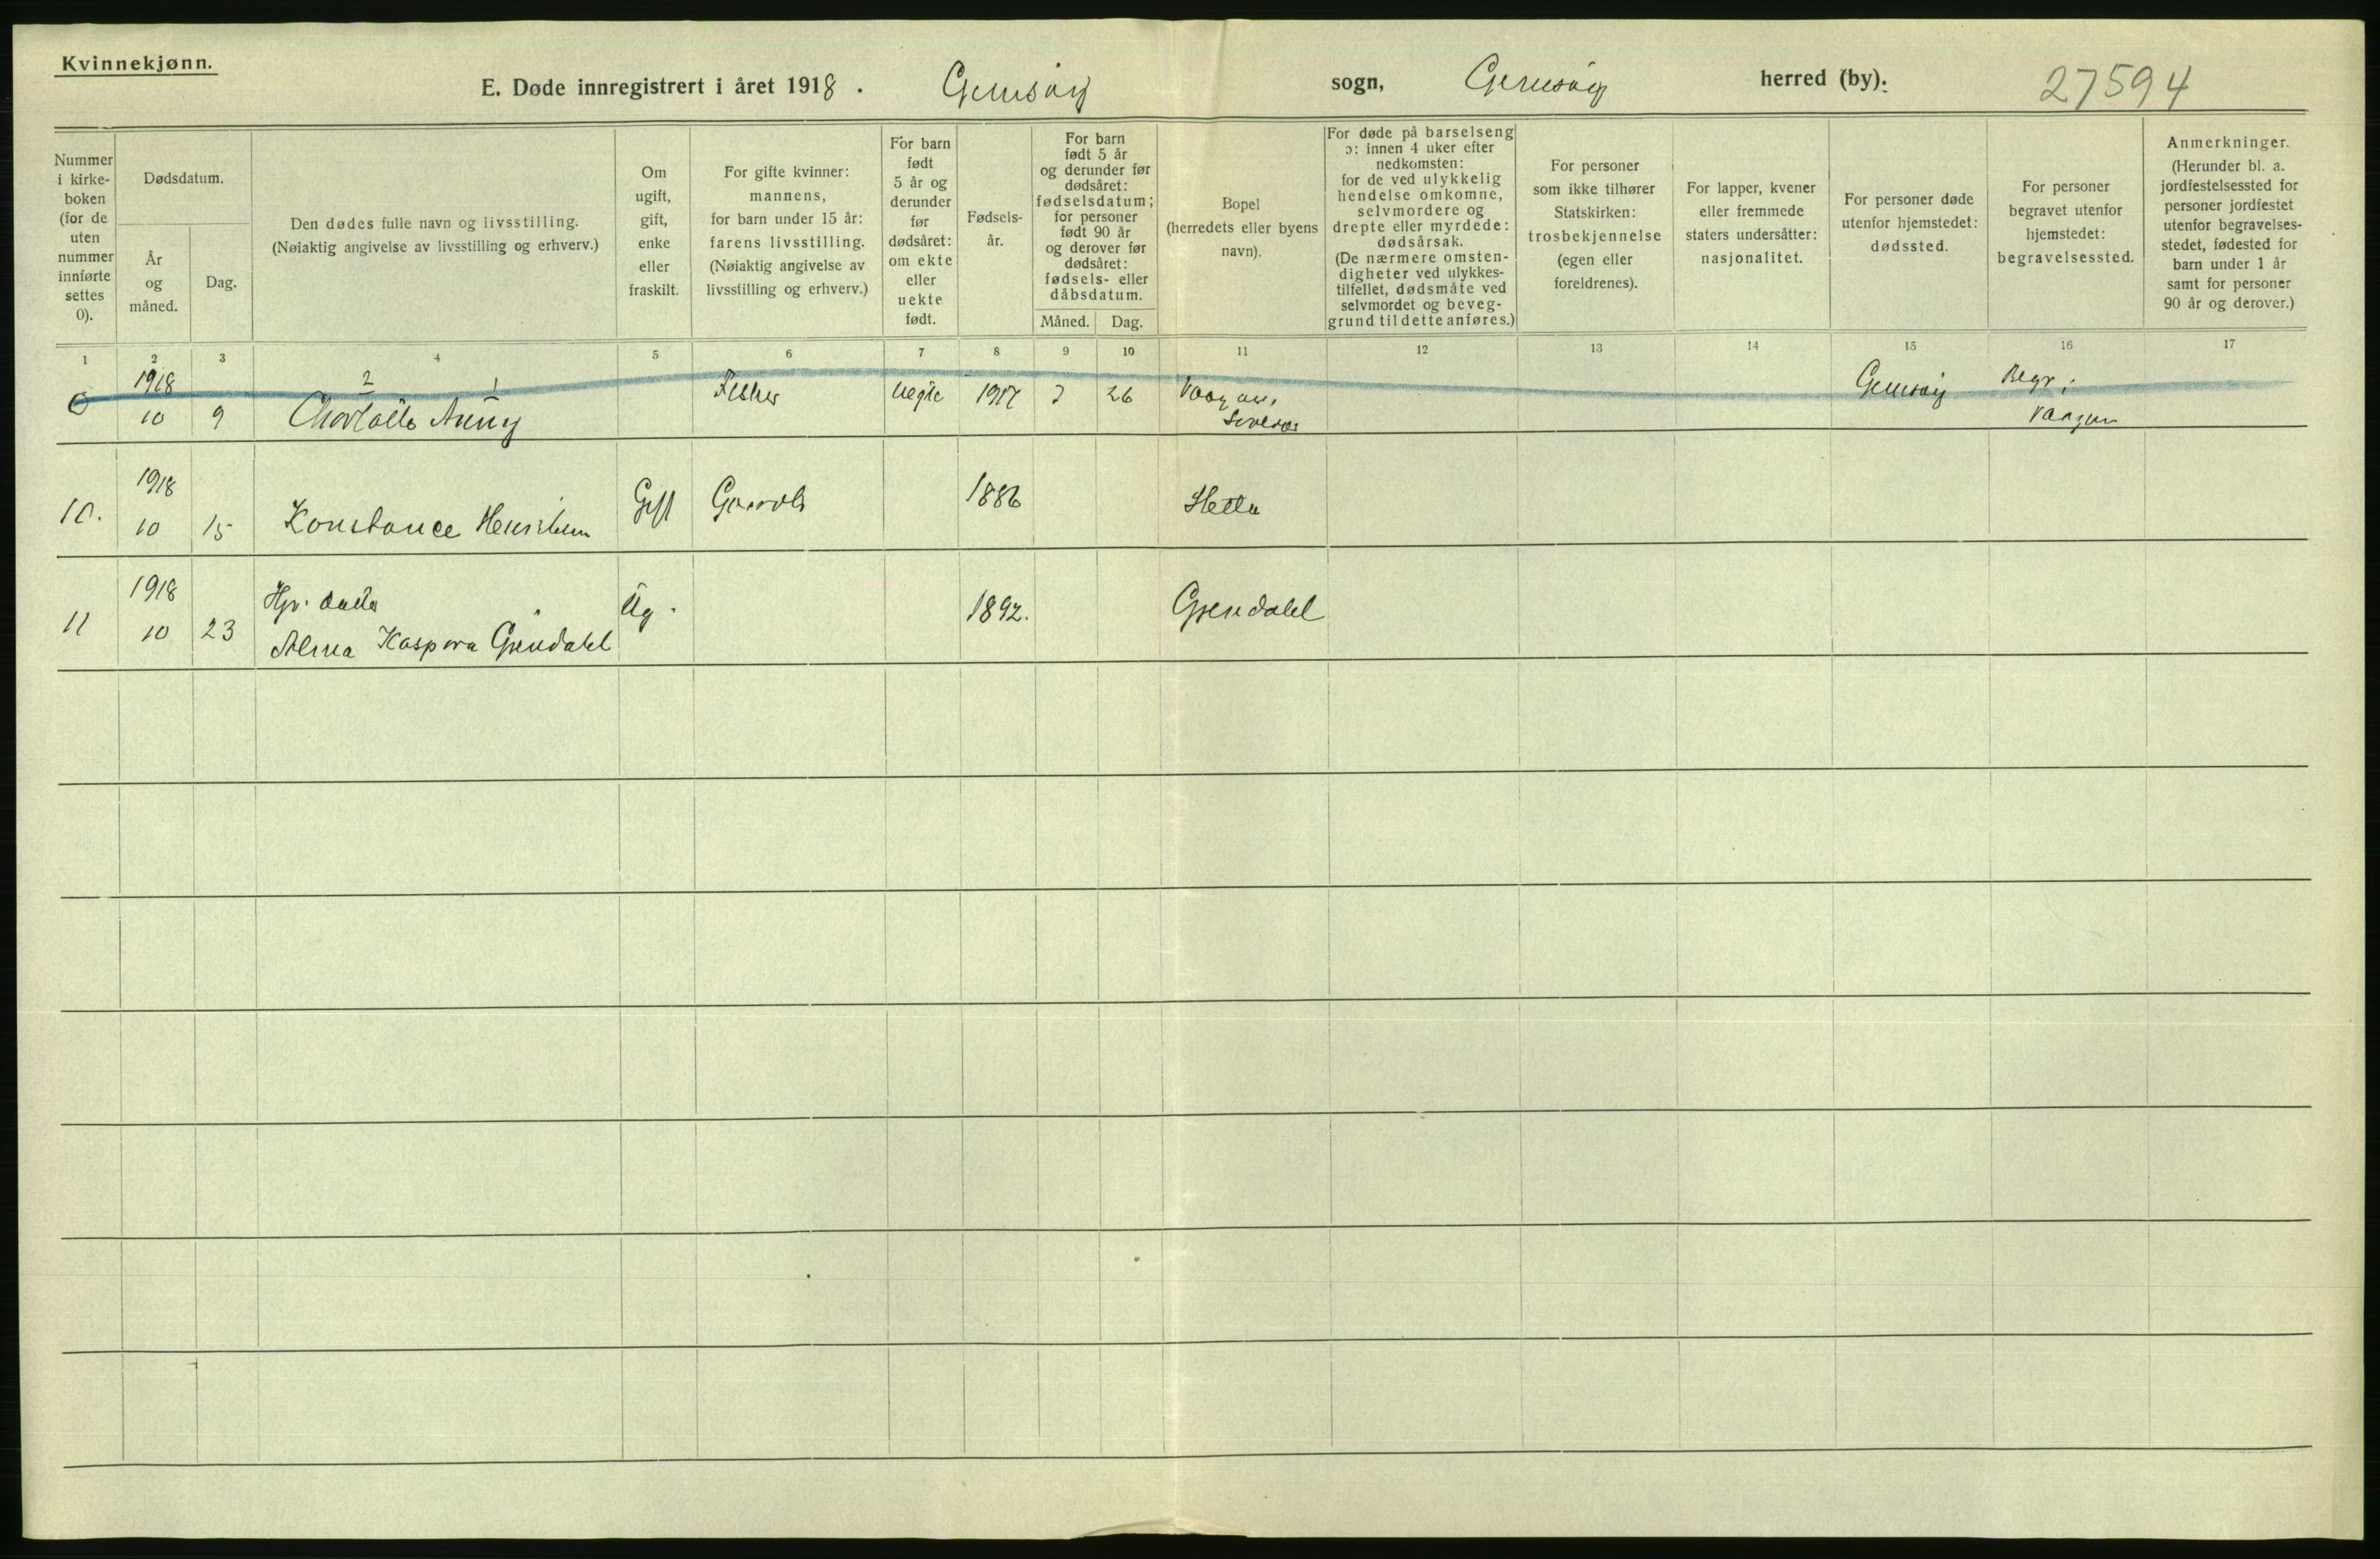 Kvinnekjønn.
E. Døde innregistrert i året 1918. Gimsøy sogn, Gimsøy herred (by): 27594
Nummer i kirke- boken (for de uten nummer innførte settes 0).
Dødsdatum.
År og måned.
Dag.
Den dødes fulle navn og livsstilling.
(Nøiaktig angivelse av livsstilling og erhverv.)
Om ugift, gift, enke eller fraskilt.
For gifte kvinner: mannens, for barn under 15 år: farens livsstilling. (Nøiaktig angivelse av livsstilling og erhverv.)
For barn født 5 år og derunder før dødsåret: om ekte eller uekte født.
Fødsels- år.
For barn født 5 år og derunder før dødsåret: fødselsdatum; for personer født 90 år og derover før dødsåret: fødsels- eller dåbsdatum.
Måned. Dag.
Bopel (herredets eller byens navn).
For døde på barselseng ɔ: innen 4 uker efter nedkomsten: for de ved ulykkelig hendelse omkomne, selvmordere og drepte eller myrdede: dødsårsak. (De nærmere omsten- digheter ved ulykkes- tilfellet, dødsmåte ved selvmordet og beveg- grund til dette anføres.)
For personer som ikke tilhører Statskirken: trosbekjennelse (egen eller foreldrenes).
For lapper, kvener eller fremmede staters undersåtter: nasjonalitet.
For personer døde utenfor hjemstedet: dødssted.
For personer begravet utenfor hjemstedet: begravelsessted.
Anmerkninger. (Herunder bl. a. jordfestelsessted for personer jordfestet utenfor begravelses- stedet, fødested for barn under 1 år samt for personer 90 år og derover.)
1 2 3 4 5 6 7 8 9 10 11 12 13 14 15 16 17
0 1918 2 1 Fisker uegte 1917 7 26 Vaagan, Gimsøy Begr. i
10 9 Charlotte Anny Vaagan
1918 Gift Gaardb 1886
10. 10 15 Konstance Henriksen Hella
1918 Hgr. datter Ug. 1892. Grendahl
11 10 23 Alma Kaspara Grendahl